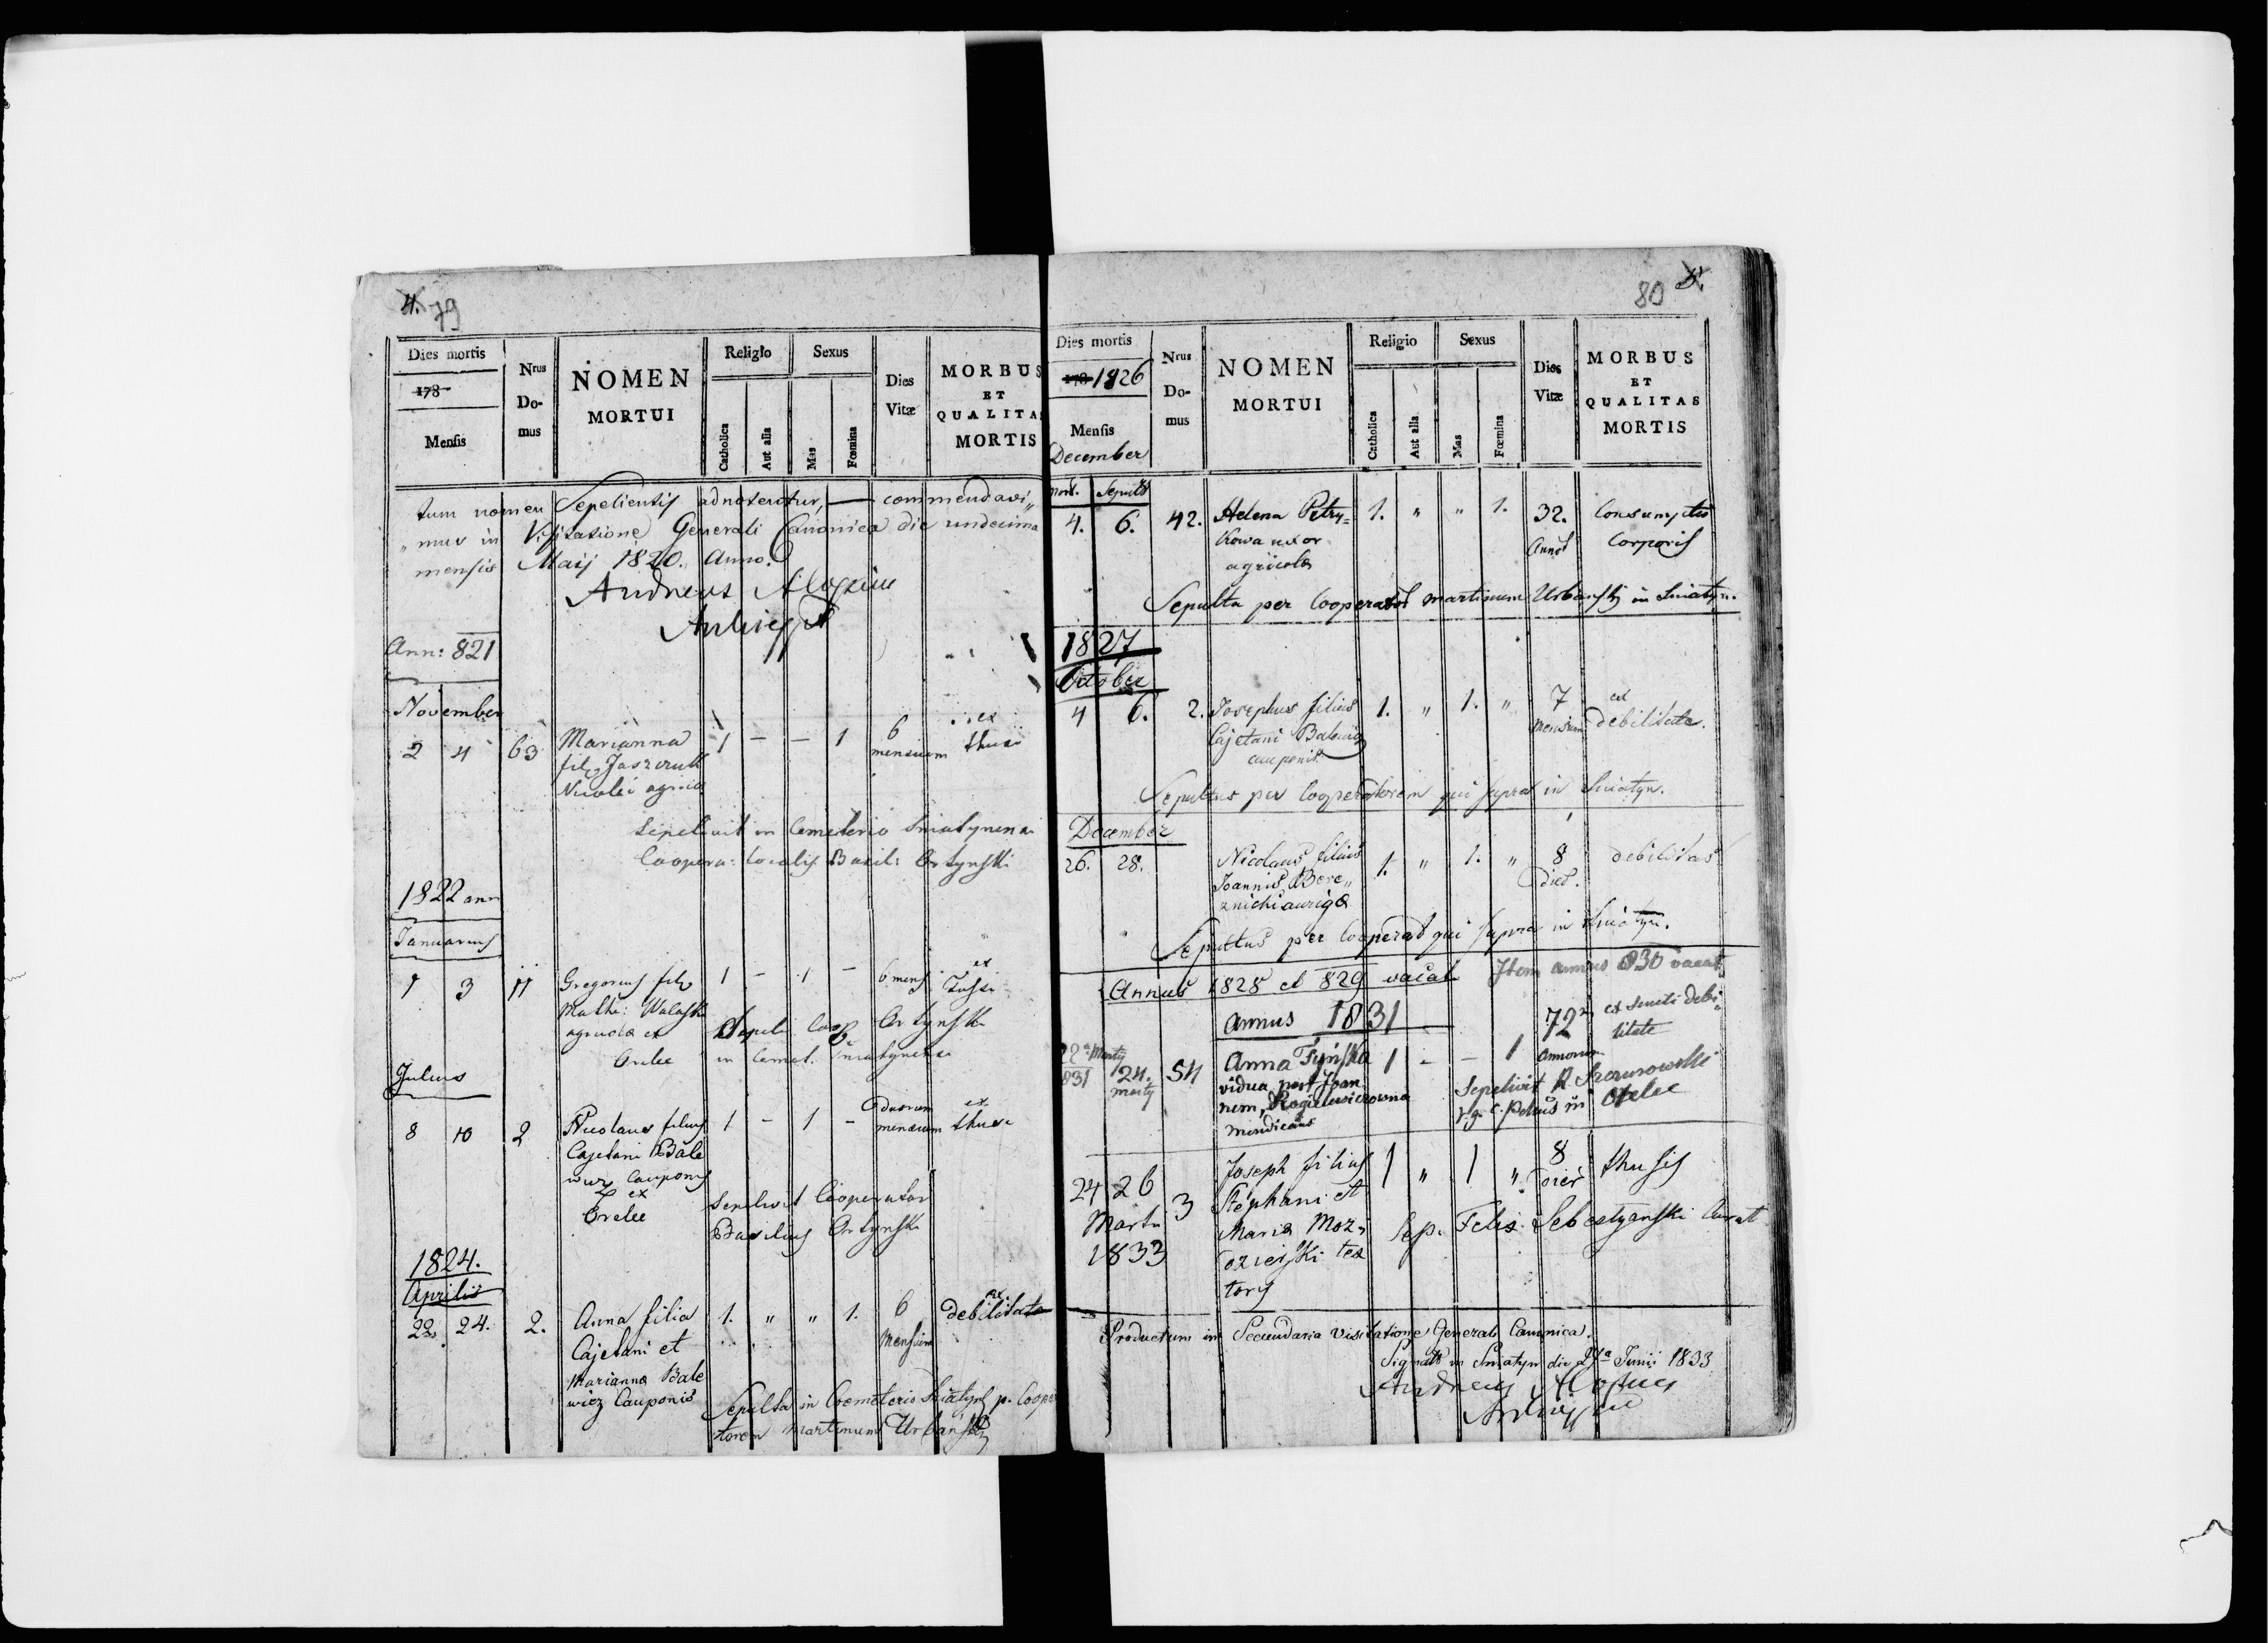 4. 79
Dies mortis
178
Mensis
Nrus Do-mus
NOMEN MORTUI
Religio
Catholica
Aut alia
Sexus
Mas
Fœmina
Dies Vitæ
MORBUS ET QUALITAS MORTIS
tum nomen Sepelientis adnoteretur, — commendavi„
„mus in Visitatione Generali Canonica die undecima
mensis Maij 1820. Anno.
Andreas Aloysius
Ankwicz
Ann: 821
November
2 4 63 Marianna 1 — — 1 6 mensium ex thusi
fil. Jaszczuk
Nicolai agric
Sepelivit in Cemeterio Sniatynensi
Coopera: localis Basil: Ortynski
1822 ann
Januarius
1 3 11 Gregorius fils 1 - 1 - 6 mens ex Tussi
Mathi: Walask
agricola ex
Orelec
Sepeli Coop Ortynski
in Cemet. Sniatynensi
Julius
8 10 2 Nicolaus filius 1 - 1 - duorum mensium ex thusi
Cajetani Bale
wicz Cauponis
ex
Orelec
Sepelivit Cooperator
Basilius Ortynski
1824.
Aprilis
22. 24. 2. Anna filia 1. " " 1. 6 Mensium ex debilitate
Cajetani et
Marianna Bale
wicz Cauponis
Sepulta in Coemeterio Sniatyn p. Coope
ratorem Martinum Urbański
80
Dies mortis
178 1826
Mensis
December
Nrus Do-mus
NOMEN MORTUI
Religio
Catholica
Aut alia
Sexus
Mas
Fœmina
Dies Vitæ
MORBUS ET QUALITAS MORTIS
Mort. Sepult
4. 6. 42. Helena Petry= 1. " " 1. 32. Annor Consumptio Corporis
kowa uxor
agricola
Sepulta per Cooperator Martinum Urbański in Sniatyn.
1827
October
4 6. 2. Josephus filius 1. " 1. " 7 Mensium ex debilitate.
Cajetani Balewicz
cauponis
Sepultus per Cooperatorem qui supra in Sniatyn.
December
26. 28. Nicolaus filius 1. " 1. " 8 dies. debilitas
Joannis Bere„
znicki auriga
Sepultus per Cooperat qui supra in Sniatyn.
Annus 1828 et 829 vacat Item annus 830 vacat
Annus 1831
22a Marty 831 24. marty 54 Anna Tyńska 1 - - 1 72 annorum ex senili debilitate
vidua post Joan
nem,
mendicans
Sepelivit R Szczurowski
Orelec
24 26 Marti 1833 3 Joseph filius 1 " 1 " 8 dier thusis
Stephani et
Maria Moz„
dzierski tex
toris
Sep. Felix Sebestyanski Curat
Productum in Secundaria Visitatione Generali Canonica.
Signatt in Sniatyn die 27a Junii 1833
Andreas Aloysius
Ankwicz